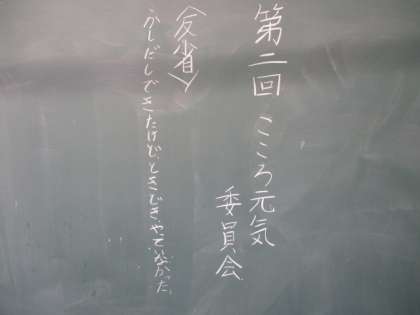 第二回 こころ元気
委員会
〈反省〉
かしだしできたけど、ときどき、やっていなかった。